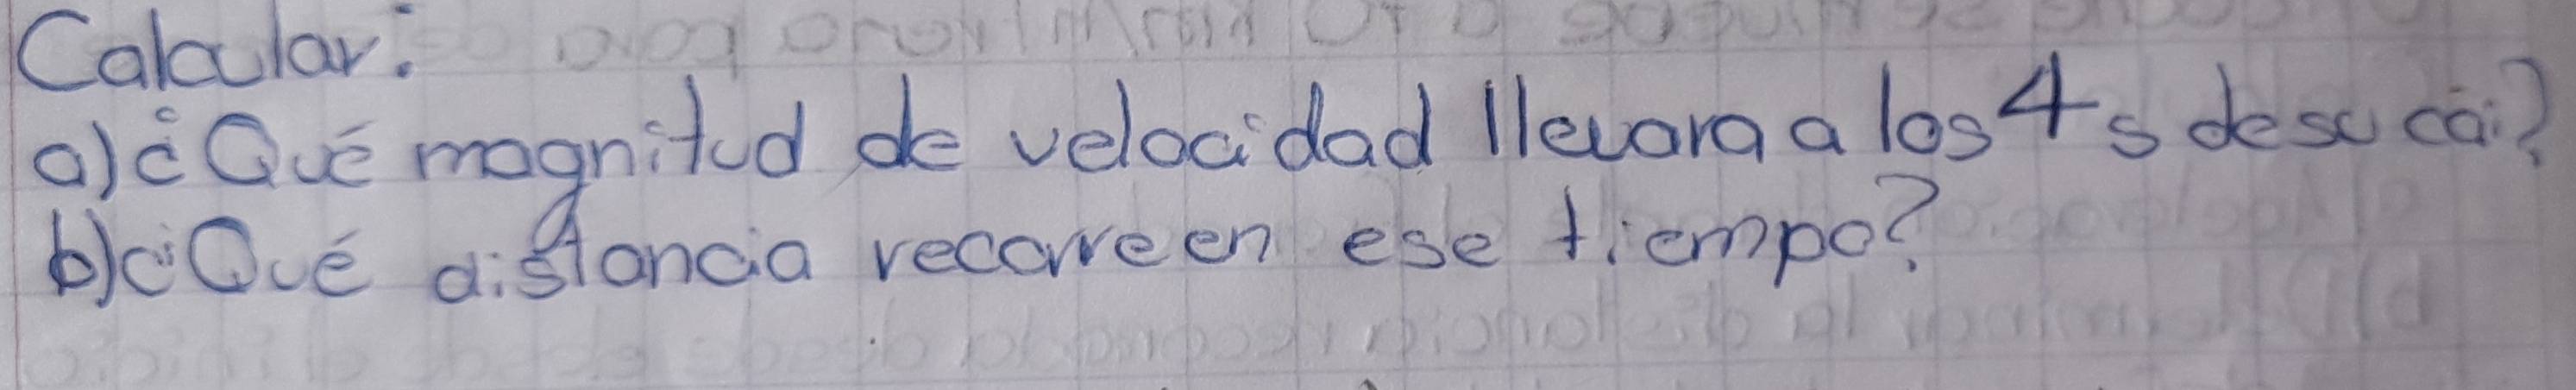 Calcular:
a)¿Qué magnitud de velocidad llevara a los 4 s de su cai?
b)¿Qué distancia recorre en ese tiempo?